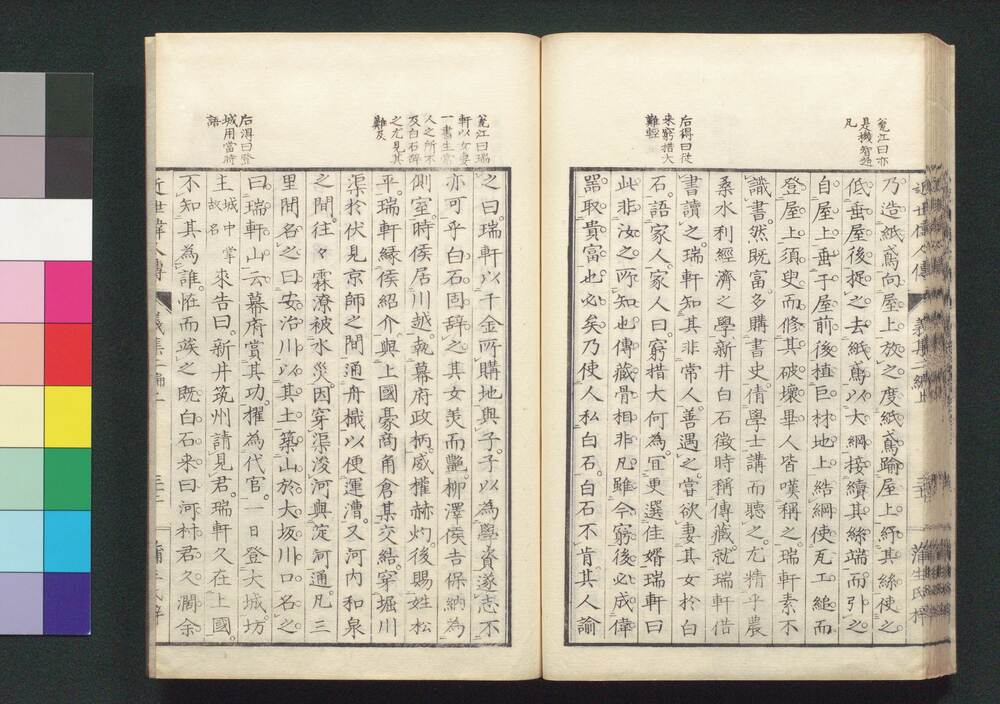 寛江曰亦
是機智超
凡
乃造紙鳶向屋上放之度紙鳶踰屋上紓其絲使之
低垂屋後捉之去紙鳶以大綱接續其絲端而引之
自屋上垂于屋前後植巨材地上結綱使瓦工縋而
登屋上須臾而修其破壞畢人皆嘆稱之瑞軒素不
識書然既富多購書史倩學士講而聽之尤精乎農
桑水利經濟之學新井白石微時稱傳藏就瑞軒借
書讀之瑞軒知其非常人善遇之嘗欲妻其女於白
石語家人家人曰窮措大何為宜更選佳婿瑞軒曰
此非汝之所知也傳藏骨相非凡雖今窮後必成偉
器取貴富也必矣乃使人私白石白石不肯其人諭
石得曰從
來窮措大
難輕
之曰瑞軒以千金所購地與子子以為學資遂志不
亦可乎白石固辭之其女美而艷柳澤侯吉保納為
側室時侯居川越執幕府政柄威權赫灼後賜姓松
平瑞軒緣侯紹介與上國豪商角倉某交結穿堀川
渠於伏見京師之間通舟檝以便運漕又河内和泉
之間往々霖潦被水災因穿渠浚河與淀河通凡三
里間名之曰安治川以其土築山於大坂川口名之
曰瑞軒山云幕府賞其功擢為代官一日登大城坊
主城中掌故名來告曰新井筑州請見君瑞軒久在上國
不知其為誰怪而竢之既白石来曰河村君久濶余
寛江曰瑞
軒以女妻
一書生常
人之所不
及白石辭
之尤見其
難及
石得曰登
城用當時
語
近世偉人傳
義集二編上
蒲生氏梓